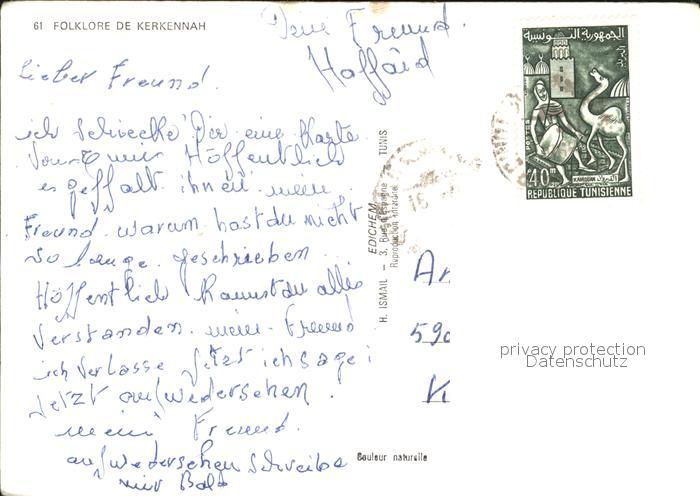 61 FOLKLORE DE KERKENNAH
Dein Freund.
Haffäid
lieber Freund.
ich schiecke Dir eine Karte
von mir Höffentlich
es geffält ihnen mein
Freund. warum hast du nicht
so lange geschrieben.
Höffentlich kannst du alles
verstanden. mein Freund
ich verlasse jetzt ich sage:
jetzt aufwiedersehen.
mein Freund.
aufwiedersehen schreibe
mir Bald
EDICHEM
H. ISMAIL — 3, Rue d'Espagne TUNIS
Reproduction interdite
Couleur naturelle
الجمهورية التونسية
البريد
POSTES
40m
KAIROUAN القيروان
REPUBLIQUE TUNISIENNE
An
590
K
privacy protection
Datenschutz